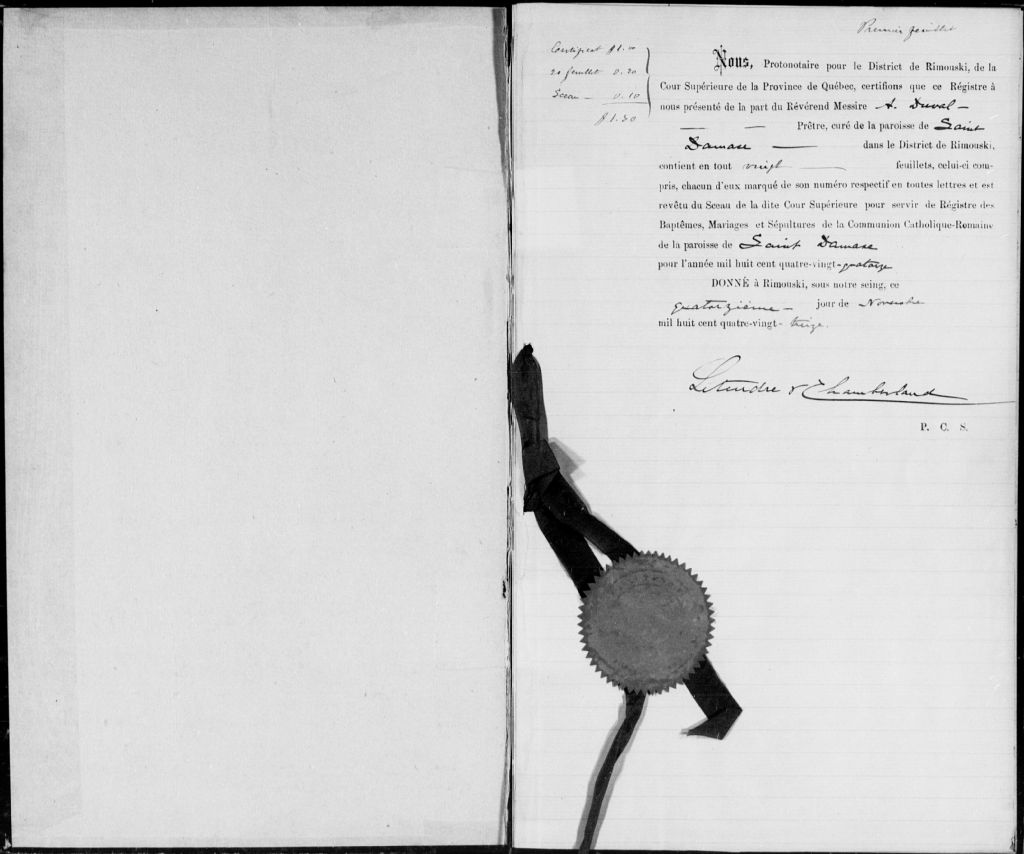 Premier feuillet
Certificat $1.00
20 feuillet 0.20
Sceau — 0.10
$1.30
Nous, Protonotaire pour le District de Rimouski, de la
Cour Supérieure de la Province de Québec, certifions que ce Régistre à
nous présenté de la part du Révérend Messire A. Duval —
— — Prêtre, curé de la paroisse de Saint
Damase — dans le District de Rimouski,
contient en tout vingt — feuillets, celui-ci com-
pris, chacun d'eux marqué de son numéro respectif en toutes lettres et est
revêtu du Sceau de la dite Cour Supérieure pour servir de Régistre des
Baptêmes, Mariages et Sépultures de la Communion Catholique-Romaine
de la paroisse de Saint Damase
pour l'année mil huit cent quatre-vingt-quatorze
DONNÉ à Rimouski, sous notre seing, ce
quatorzième — jour de Novembre
mil huit cent quatre-vingt- treize.
Letendre & Chamberland
P. C. S.